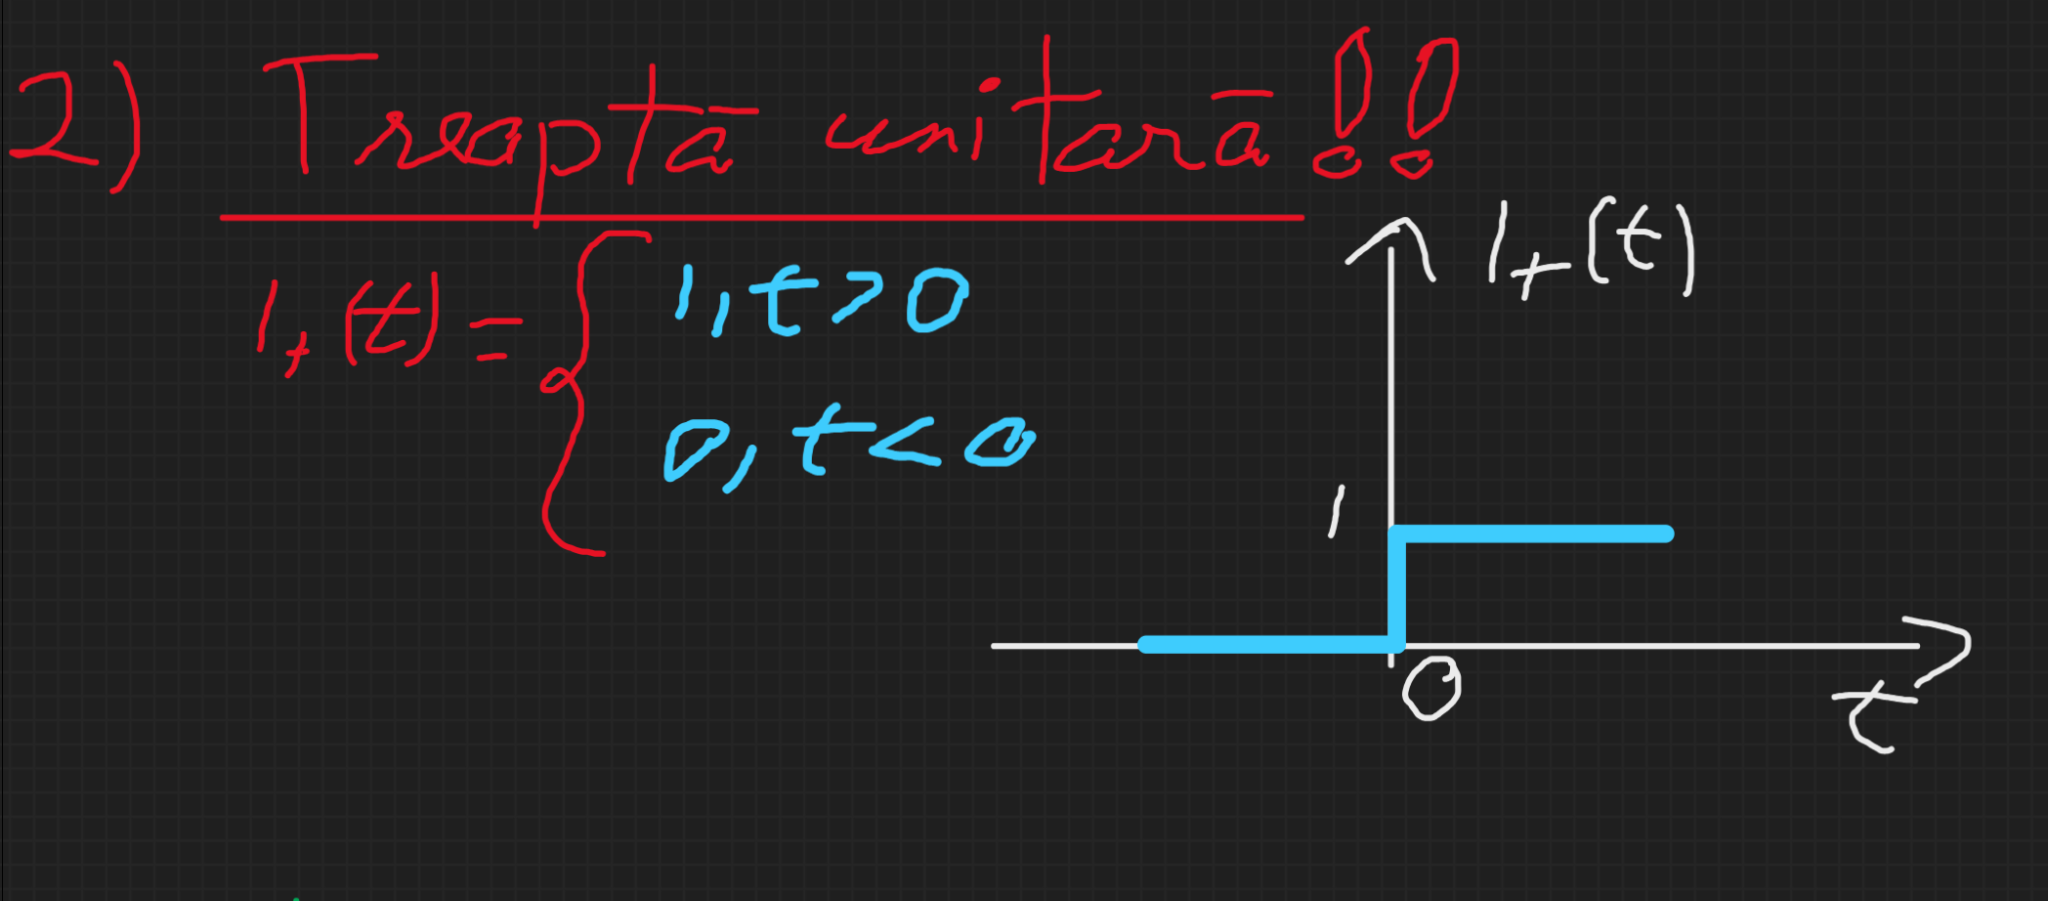 2) Treaptā unitarā !!
1₊(t) = { 1, t > 0
0, t < 0
1₊(t)
1
0
t